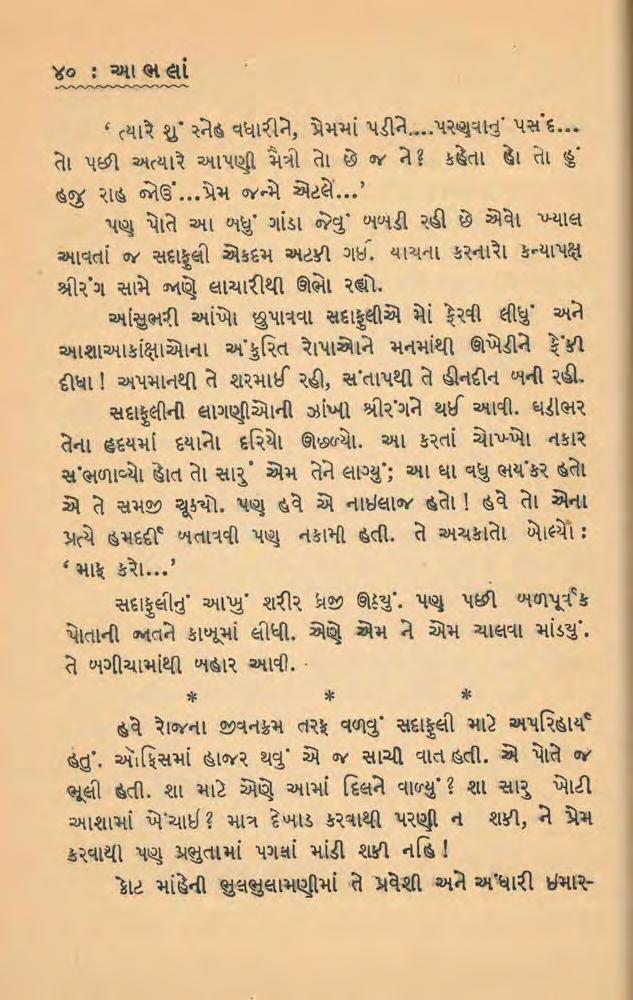 ૪૦ : આભલાં
‘ ત્યારે શું સ્નેહ વધારીને, પ્રેમમાં પડીને....પરણવાનું પસંદ...
તો પછી અત્યારે આપણી મૈત્રી તો છે જ ને? કહેતા હો તો હું
હજુ રાહ જોઉં...પ્રેમ જન્મે એટલે...’
પણ પોતે આ બધું ગાંડા જેવું બબડી રહી છે એવો ખ્યાલ
આવતાં જ સદાફુલી એકદમ અટકી ગઈ. યાચના કરનારો કન્યાપક્ષ
શ્રીરંગ સામે જાણે લાચારીથી ઊભો રહ્યો.
આંસુભરી આંખો છુપાવવા સદાફુલીએ મોં ફેરવી લીધું અને
આશાઆકાંક્ષાઓના અંકુરિત રોપાઓને મનમાંથી ઊખેડીને ફેંકી
દીધા! અપમાનથી તે શરમાઈ રહી, સંતાપથી તે હીનદીન બની રહી.
સદાફુલીની લાગણીઓની ઝાંખી શ્રીરંગને થઈ આવી. ઘડીભર
તેના હૃદયમાં દયાનો દરિયો ઊછળ્યો. આ કરતાં ચોખ્ખો નકાર
સંભળાવ્યો હોત તો સારું એમ તેને લાગ્યું; આ ઘા વધુ ભયંકર હતો
એ તે સમજી ચૂક્યો. પણ હવે એ નાઇલાજ હતો! હવે તો એના
પ્રત્યે હમદર્દી બતાવવી પણ નકામી હતી. તે અચકાતો બોલ્યો :
‘ માફ કરો...’
સદાફુલીનું આખું શરીર ધ્રૂજી ઊઠ્યું. પણ પછી બળપૂર્વક
પોતાની જાતને કાબૂમાં લીધી. એણે એમ ને એમ ચાલવા માંડ્યું.
તે બગીચામાંથી બહાર આવી.
* * *
હવે રોજના જીવનક્રમ તરફ વળવું સદાફુલી માટે અપરિહાર્ય
હતું. ઑફિસમાં હાજર થવું એ જ સાચી વાત હતી. એ પોતે જ
ભૂલી હતી. શા માટે એણે આમાં દિલને વાળ્યું? શા સારુ ખોટી
આશામાં ખેંચાઈ? માત્ર દેખાડ કરવાથી પરણી ન શકી, ને પ્રેમ
કરવાથી પણ પ્રભુતામાં પગલાં માંડી શકી નહિ!
કોટ માંહેની ભુલભુલામણીમાં તે પ્રવેશી અને અંધારી ઇમાર-